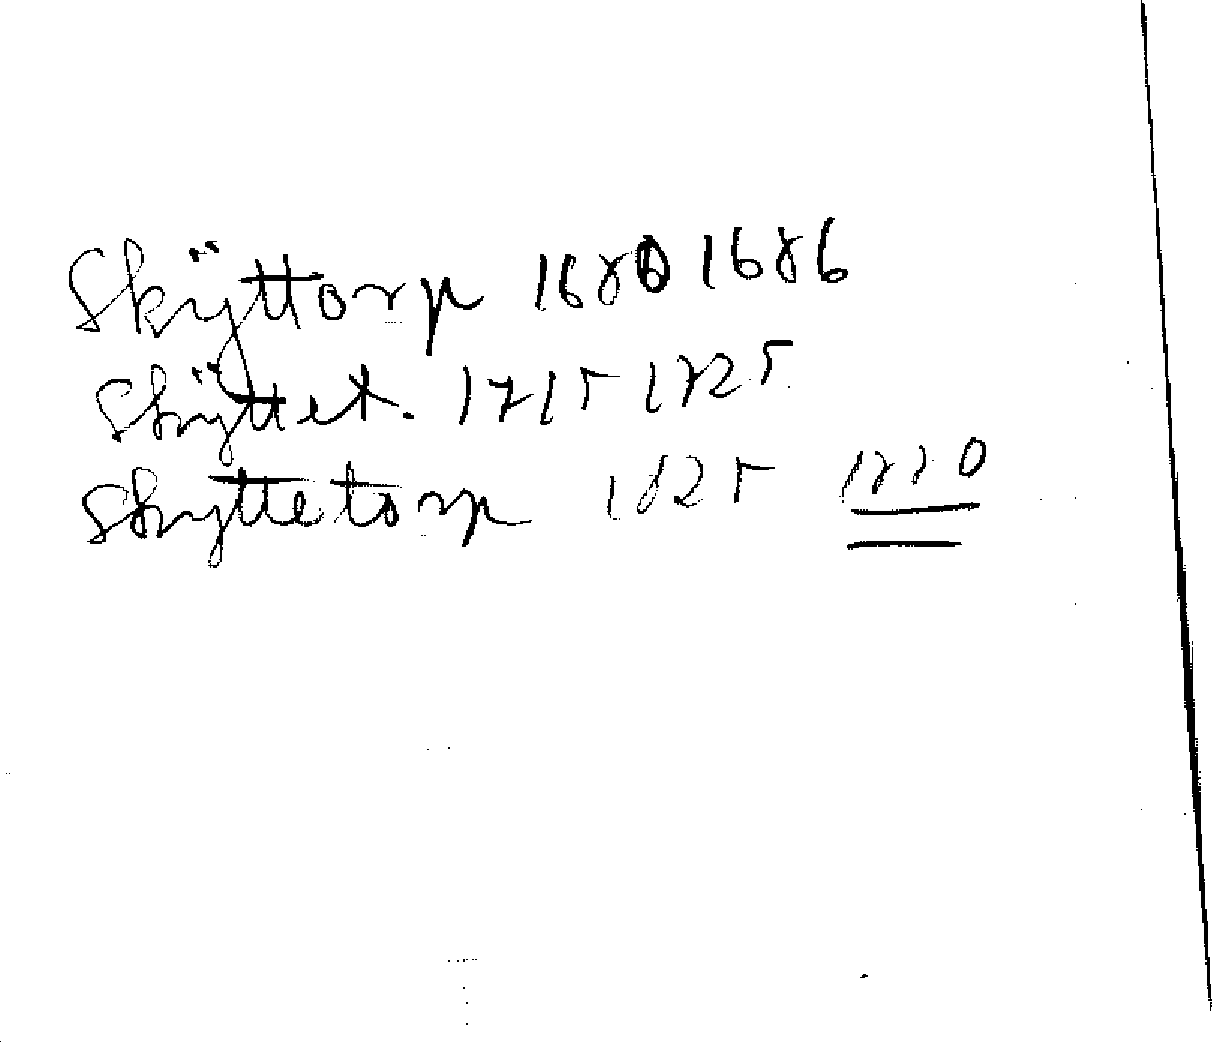 Skÿttorp 1680 1686
Skÿttet. 1715 1725
Skyttetorp 1825